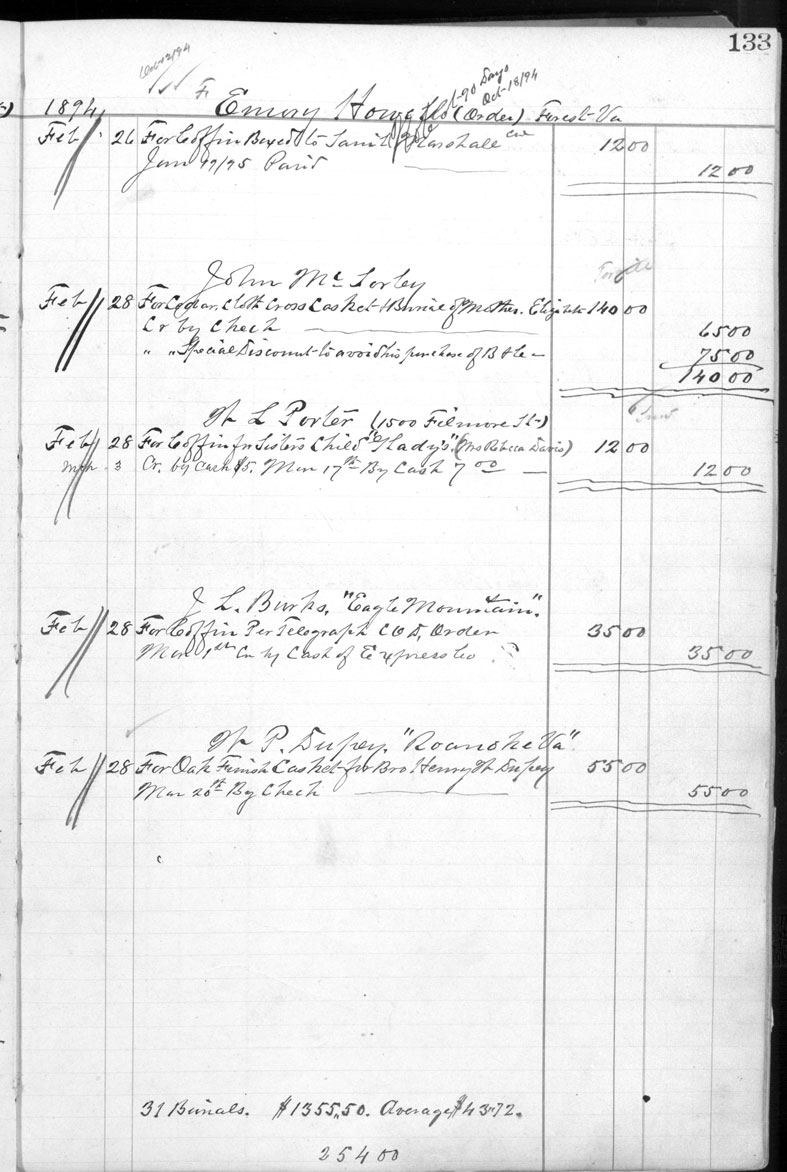 133
Oct 12/94
90 Days
Oct-18/94
1894 Emory Howells (Order) Forest-Va
Feb 26 For Coffin Boxed to Marshale 12 00
Jany /95 Paid 12 00
John Mc Sorley
Feb 28 For Cedar. Cloth Cross Casket + Burial of Mother. Elizabeth 140 00
Cr by Check 65 00
" " Special Discount to avoid his purchase of B + Co 75 00
140 00
W L Porter (1500 Filmore St-)
Feb 28 For Coffin for Sisters Child "Gladys". (Mrs Rebecca Davis) 12 00
Mch 3 Cr. by Cash $5. Mar 17th By Cash 7 00 12 00
J L. Burks, "Eagle Mountain".
Feb 28 For Coffin Per Telegraph C O D, Order 35 00
Mar 1st Cr by Cash of Express Co 35 00
W P. Dupey. "Roanoke Va"
Feb 28 For Oak Finish Casket for Bro. Henry W Dupey 55 00
Mar 20th By Check 55 00
31 Burials. $1355.50. Average $43.72.
254 00